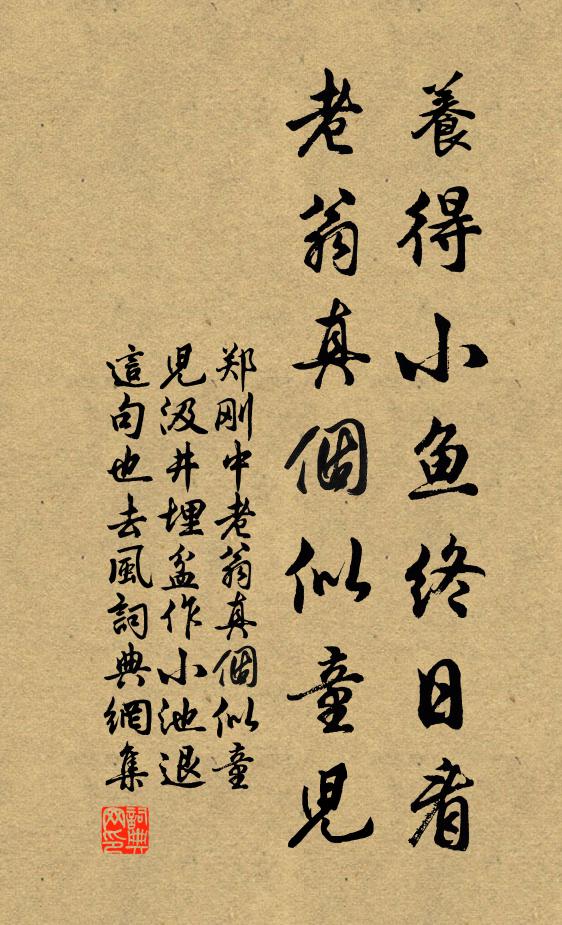 養得小魚終日看
老翁真個似童兒
郑刚中老翁真個似童
児汲井埋盆作小池退
這句也去風詞典網集
詞典网印